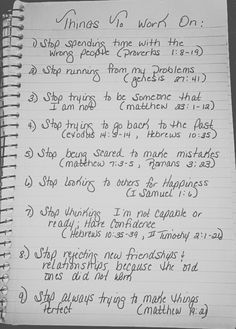 Things To Work On:
1) Stop spending time with the
wrong people (Proverbs 1:8-19)
2) Stop running from my problems
(genesis 27:41)
3) Stop trying to be someone that
I am not (matthew 23:1-12)
4) Stop trying to go back to the past
(exodus 14:8-14, Hebrews 10:35)
5) Stop being scared to make mistakes
(matthew 7:3-5, Romans 3:23)
6) Stop looking to others for Happiness
(I Samuel 1:6)
7) Stop thinking I'm not capable or
ready; Have confidence
(Hebrews 10:35-39, II Timothy 2:1-26)
8.) Stop rejecting new friendships &
relationships because the old
ones did not work
9) Stop always trying to make things
perfect (matthew